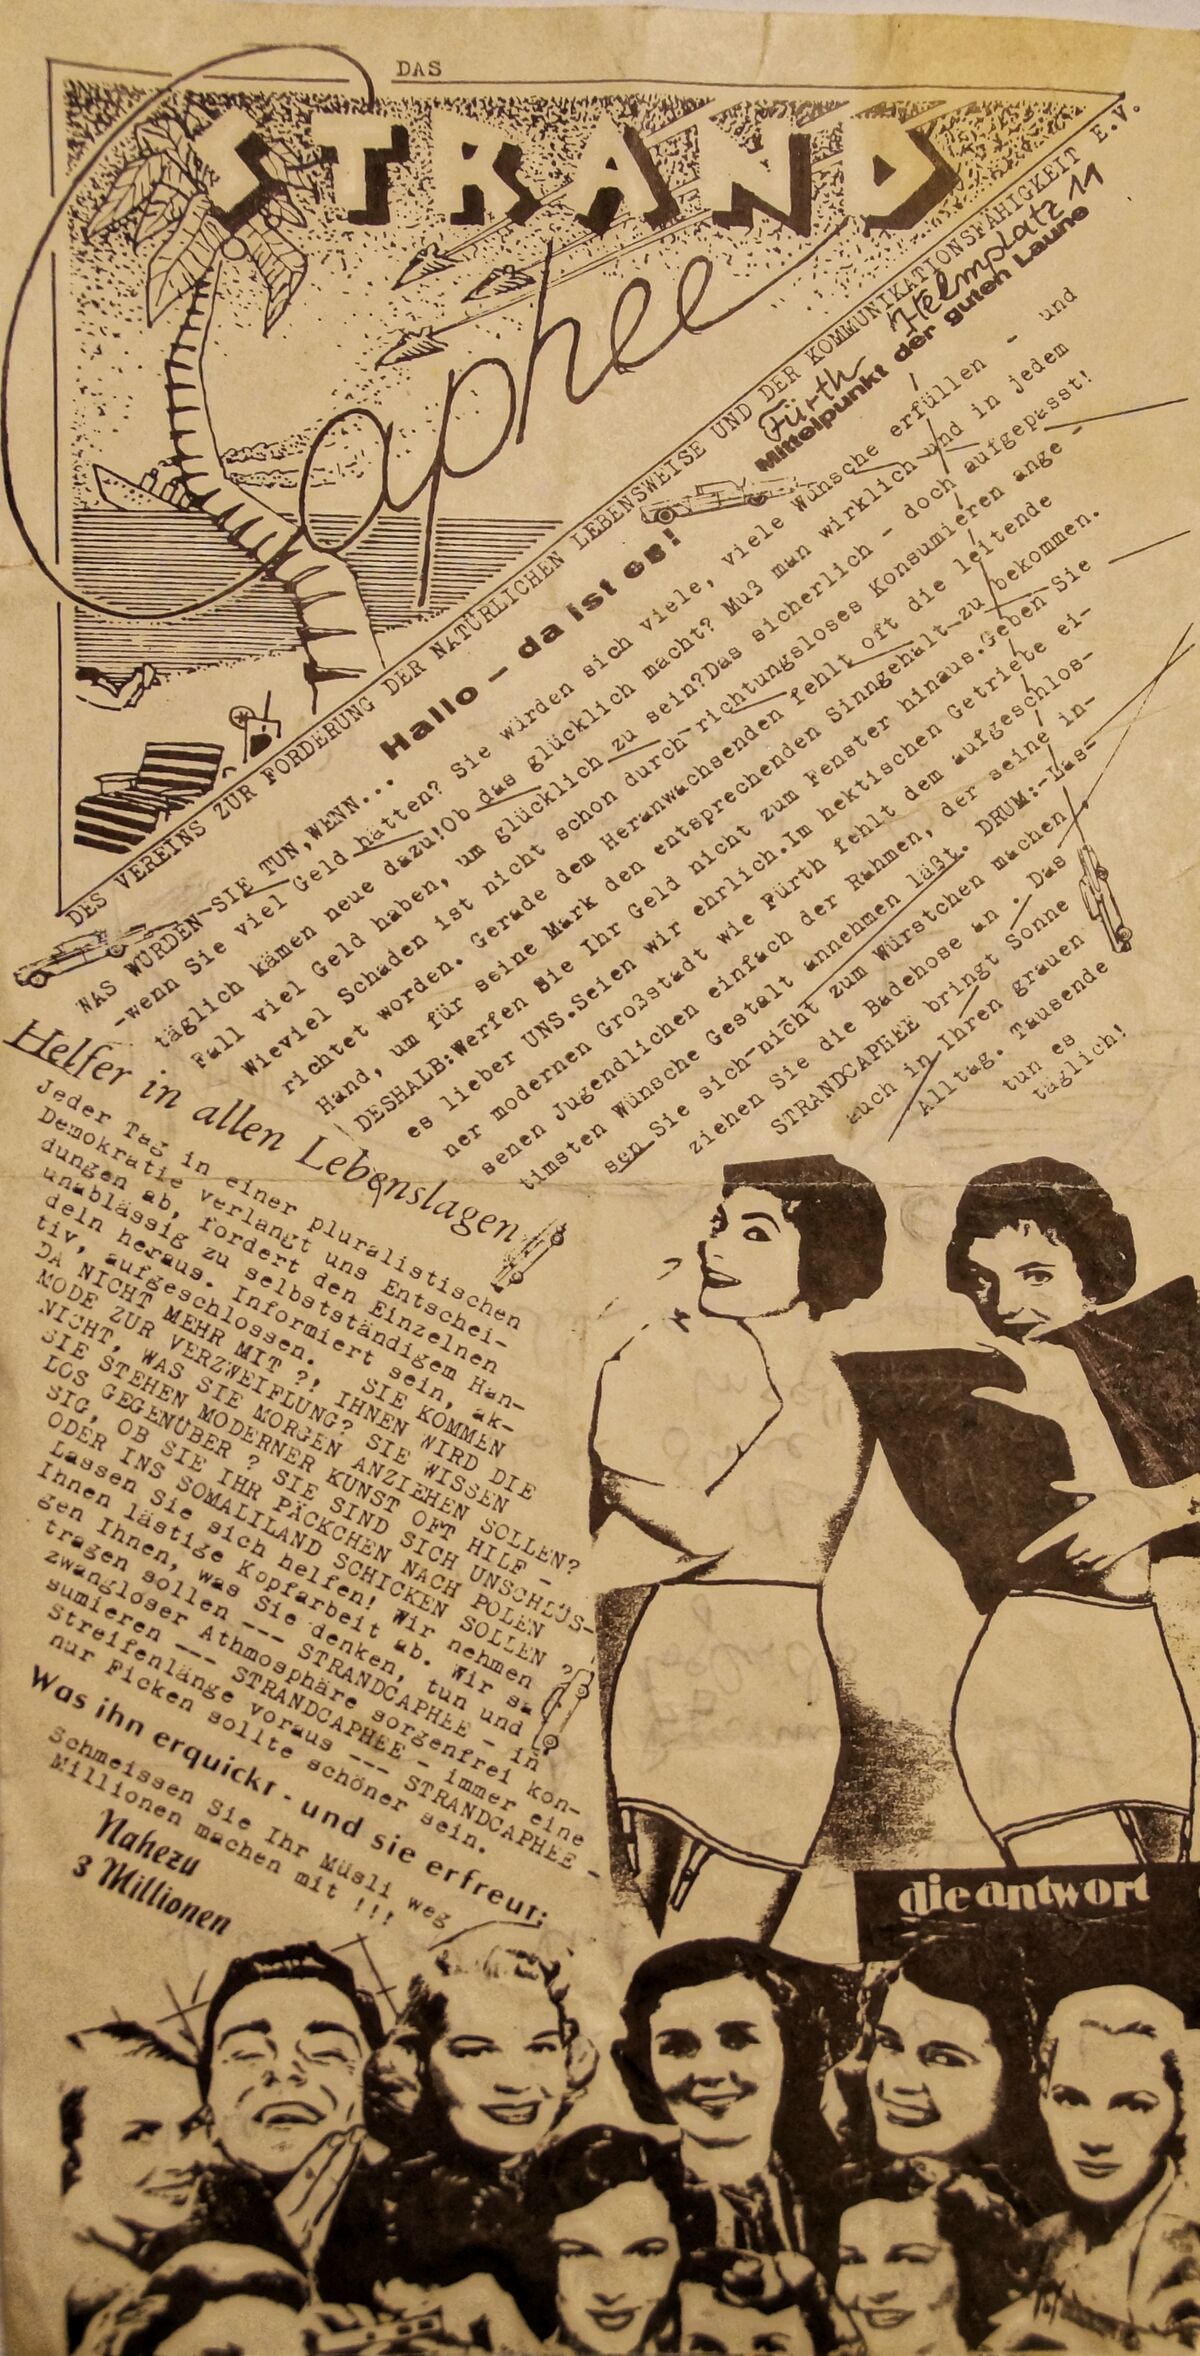 DAS
STRAND
Caphee
DES VEREINS ZUR FÖRDERUNG DER NATÜRLICHEN LEBENSWEISE UND DER KOMMUNIKATIONSFÄHIGKEIT E.V.
Fürth Helmplatz 11
Mittelpunkt der guten Laune
Hallo - da ist es!
WAS WÜRDEN SIE TUN, WENN...
-wenn Sie viel Geld hätten? Sie würden sich viele, viele Wünsche erfüllen - und
täglich kämen neue dazu! Ob das glücklich macht? Muß man wirklich und in jedem
Fall viel Geld haben, um glücklich zu sein? Das sicherlich - doch aufgepasst!
Wieviel Schaden ist nicht schon durch richtungsloses Konsumieren ange-
richtet worden. Gerade dem Heranwachsenden fehlt oft die leitende
Hand, um für seine Mark den entsprechenden Sinngehalt zu bekommen.
DESHALB: Werfen Sie Ihr Geld nicht zum Fenster hinaus. Geben Sie
es lieber UNS. Seien wir ehrlich. Im hektischen Getriebe ei-
ner modernen Großstadt wie Fürth fehlt dem aufgeschlos-
senen Jugendlichen einfach der Rahmen, der seine in-
timsten Wünsche Gestalt annehmen läßt. DRUM:-Las-
sen Sie sich nicht zum Würstchen machen,
ziehen Sie die Badehose an. Das
STRANDCAPHEE bringt Sonne
auch in Ihren grauen
Alltag. Tausende
tun es
täglich!
Helfer in allen Lebenslagen
Jeder Tag in einer pluralistischen
Demokratie verlangt uns Entschei-
dungen ab, fordert den Einzelnen
unablässig zu selbstständigem Han-
deln heraus. Informiert sein, ak-
tiv, aufgeschlossen. SIE KOMMEN
DA NICHT MEHR MIT ?! IHNEN WIRD DIE
MODE ZUR VERZWEIFLUNG? SIE WISSEN
NICHT, WAS SIE MORGEN ANZIEHEN SOLLEN?
SIE STEHEN MODERNER KUNST OFT HILF -
LOS GEGENÜBER ? SIE SIND SICH UNSCHLÜS-
SIG, OB SIE IHR PÄCKCHEN NACH POLEN
ODER INS SOMALILAND SCHICKEN SOLLEN ?
Lassen Sie sich helfen! Wir nehmen
Ihnen lästige Kopfarbeit ab. Wir sa-
gen Ihnen, was Sie denken, tun und
tragen sollen --- STRANDCAPHEE - in
zwangloser Athmosphäre sorgenfrei kon-
sumieren --- STRANDCAPHEE - immer eine
Streifenlänge voraus --- STRANDCAPHEE -
nur Ficken sollte schöner sein.
Was ihn erquickt - und sie erfreut:
Schmeissen Sie Ihr Müsli weg
Millionen machen mit !!!
Nahezu
3 Millionen
die antwort